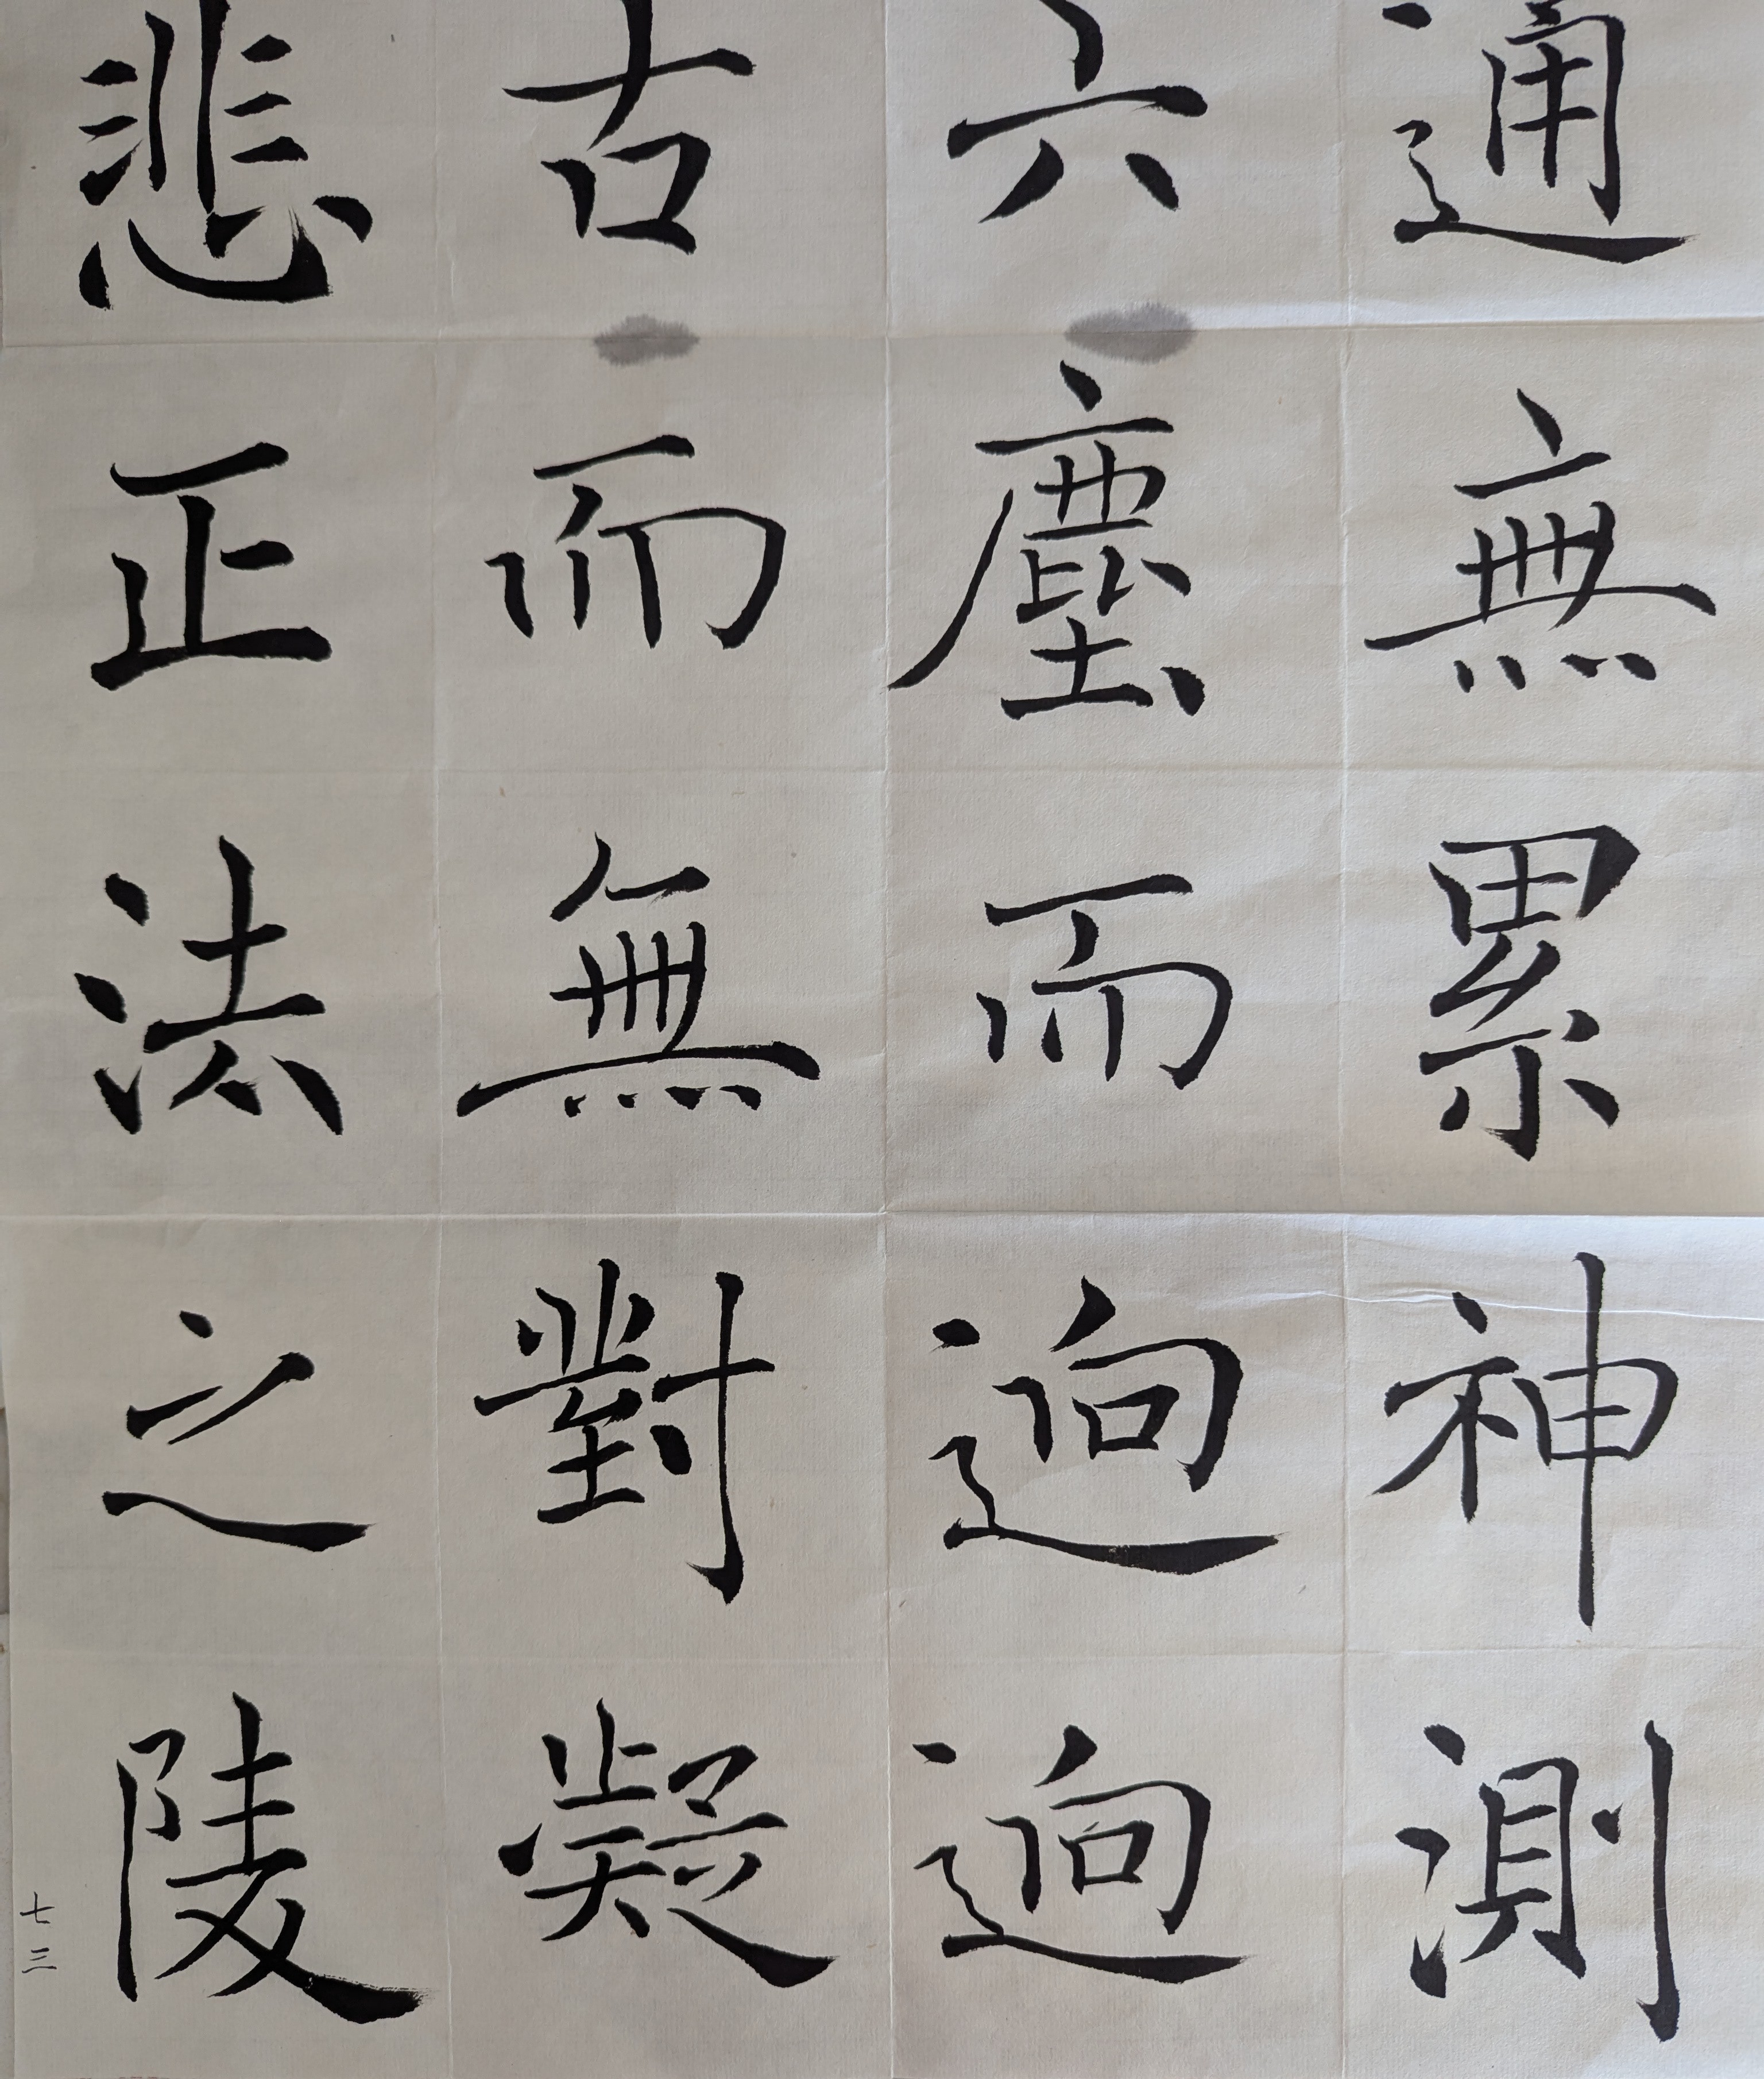 通無累神測
六塵而迥迥
古而無對凝
悲正法之陵
七三